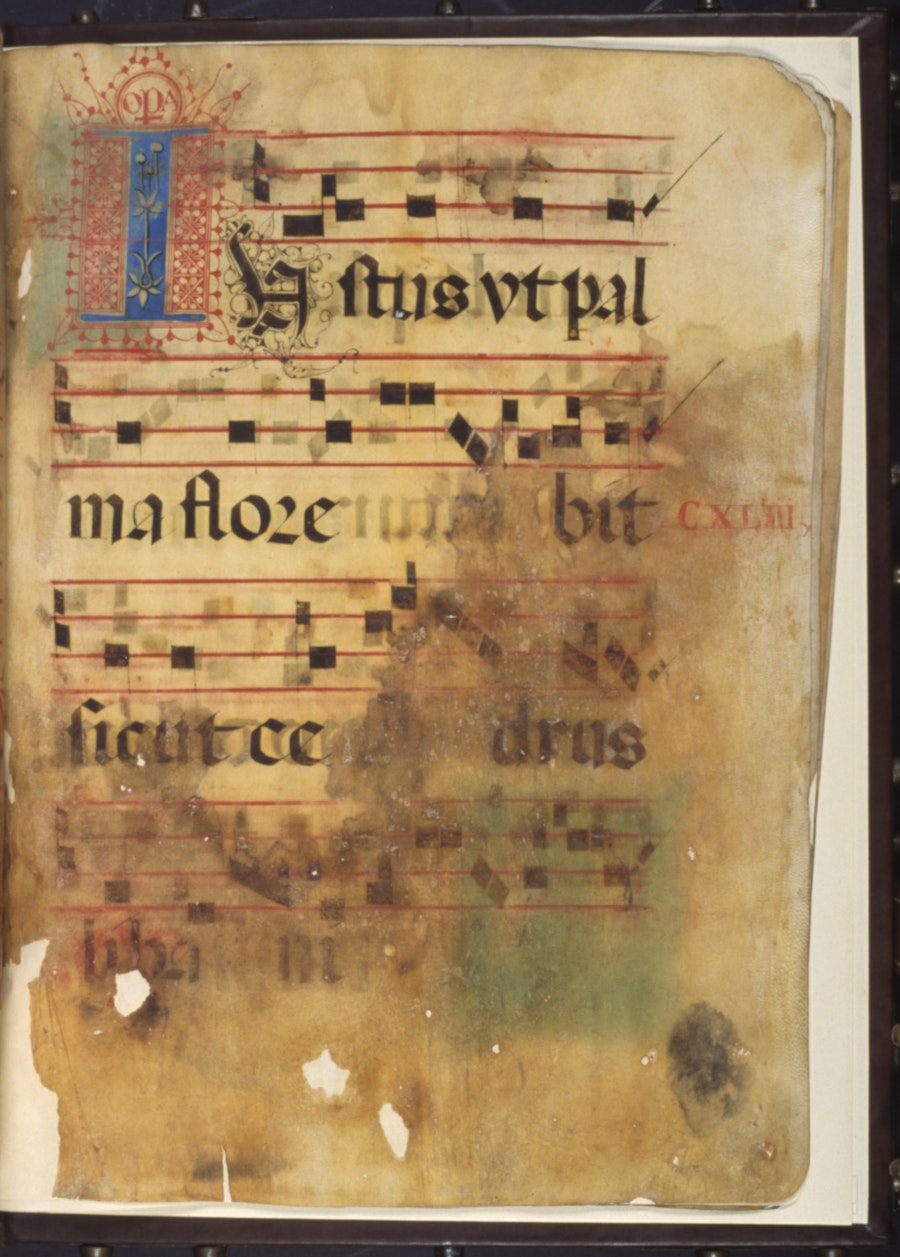 opa
IVstus vt pal
ma flore bit CXLIII
sicut ce drus
liba ni